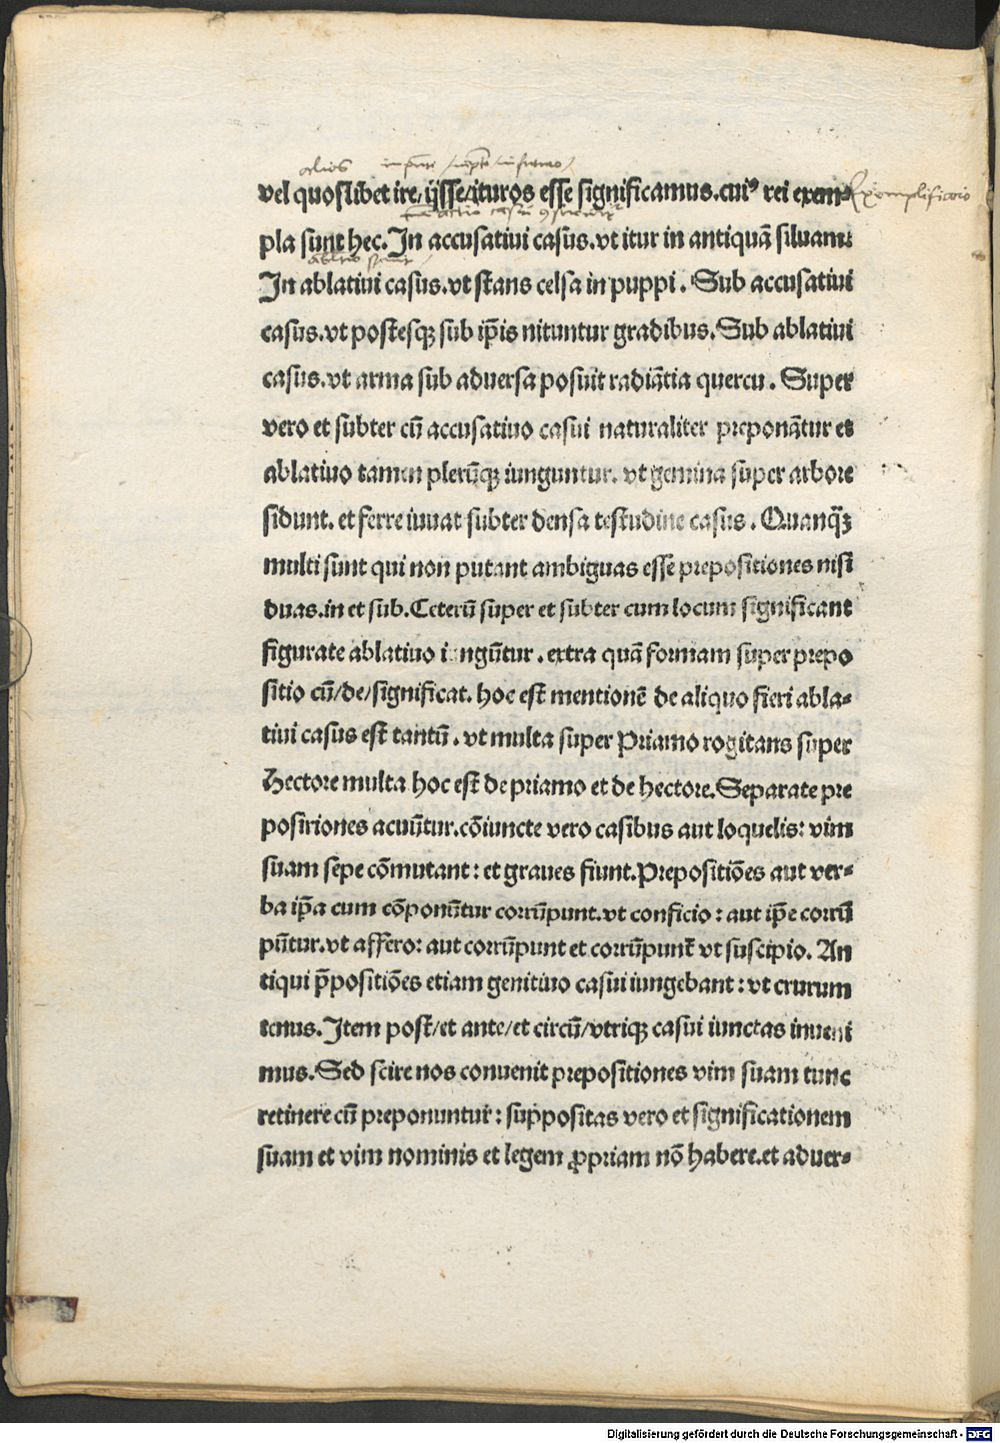 alios
vel quoslibet ire/ijsse/ituros esse significamus.cuiꝰ rei exem⸗
Exemplificatio
pla sunt hec. In accusatiui casus.vt itur in antiquā siluam:
In ablatiui casus.vt stans celsa in puppi. Sub accusatiui
casus.vt postesqꝫ sub ip̄is nituntur gradibus. Sub ablatiui
casus.vt arma sub aduersa posuit radiātia quercu. Super
vero et subter cū accusatiuo casui naturaliter preponātur et
ablatiuo tamen plerūqꝫ iunguntur. vt gemina super arbore
sidunt. et ferre iuuat subter densa testudine casus. Quanqꝫ̄
multi sunt qui non putant ambiguas esse prepositiones nisi
duas.in et sub. Ceterū super et subter cum locum significant
figurate ablatiuo iungūtur. extra quā formam super prepo
sitio cū/de/significat. hoc est mentionē de aliquo fieri abla⸗
tiui casus est tantū. vt multa super Priamo rogitans super
Hectore multa hoc est de priamo et de hectore. Separate pre
posiriones acuūtur.cōiuncte vero casibus aut loquelis: vim
suam sepe cōmutant: et graues fiunt. Prepositiōes aut ver⸗
ba ip̄a cum cōponūtur corrūpunt.vt conficio: aut ip̄e corrū
pūtur.vt affero: aut corrūpunt et corrūpunt̄ vt suscipio. An
tiqui p̄positiōes etiam genitiuo casui iungebant: vt crurum
tenus. Item post/et ante/et circū/vtriqꝫ casui iunctas inueni
mus. Sed scire nos conuenit prepositiones vim suam tunc
retinere cū preponuntur: suppositas vero et significationem
suam et vim nominis et legem ꝓpriam nō habere.et aduer⸗
Digitalisierung gefördert durch die Deutsche Forschungsgemeinschaft - DFG